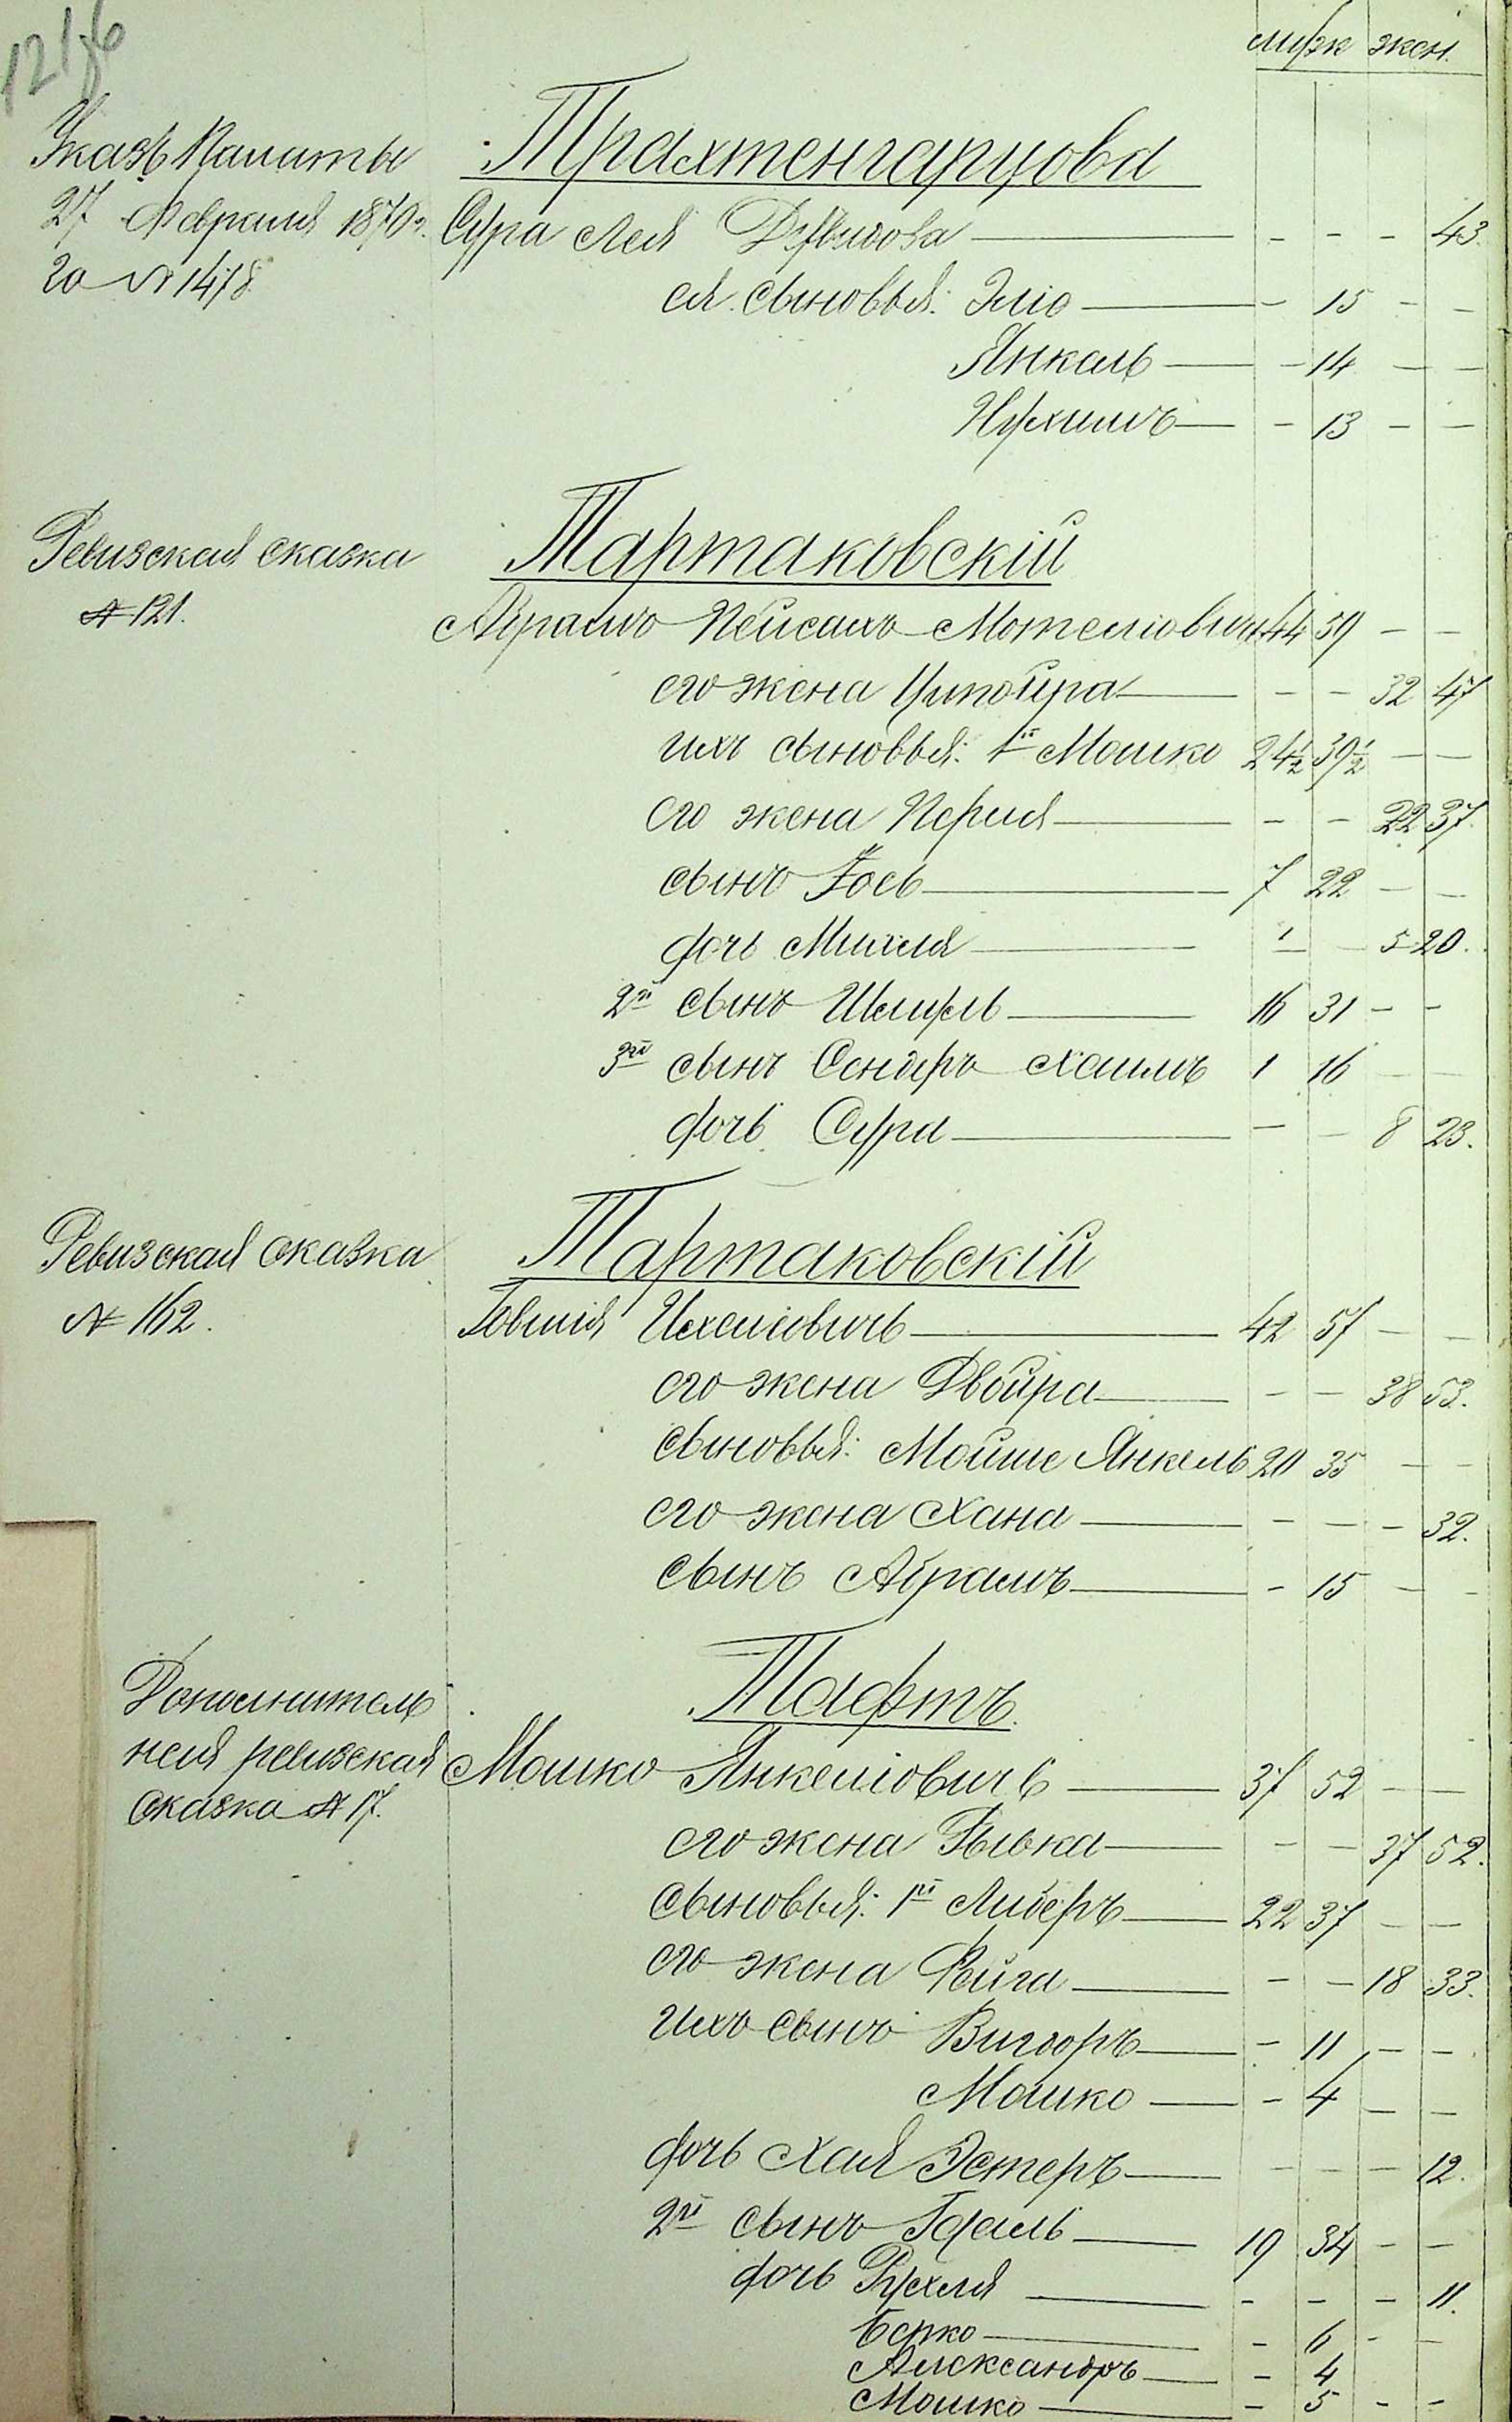 121/6
муж. жен.
Указъ Палаты
27 Февраля 1870 г.
за № 1478
Трахтенгарцова
Сура Лея Дувидова — - - - 43.
ея сыновья: Эліо — - 15 - -
Янкель — - 14 - -
Нухимъ — - 13 - -
Ревизская сказка
№ 121.
Тартаковскій
Абрамъ Пейсахъ Мотеліовичъ 44 59 - -
его жена Ципойра — - - 32 47
ихъ сыновья: 1й Мошко 24½ 39½ - -
его жена Перля — - - 22 37.
сынъ Іось — 7 22 - -
дочь Михля — - - 5 20.
2й сынъ Шмуль — 16 31 - -
3й сынъ Сендеръ Хаимъ 1 16 - -
дочь Сура — - - 8 23.
Ревизская сказка
№ 162.
Тартаковскій
Говшія Ихеліовичъ — 42 57 - -
его жена Двойра — - - 38 53.
сыновья: Мойше Янкель 20 35 - -
его жена Хана — - - - 32.
сынъ Абрамъ — - 15 - -
Дополнитель
ная ревизская
сказка № 17.
Тафтъ.
Мошко Янкеліовичъ — 37 52 - -
его жена Рывка — - - 37 52.
сыновья: 1й Либеръ — 22 37 - -
его жена Фейга — - - 18 33.
ихъ сынъ Вигдоръ — - 11 - -
Мошко — - 4 - -
дочь Хая Эстеръ — - - - 12.
2й сынъ Гдаль — 19 34 - -
дочь Рухля — - - - 11.
Берко — - 6 - -
Александръ — - 4
Мошко — - 5 - -